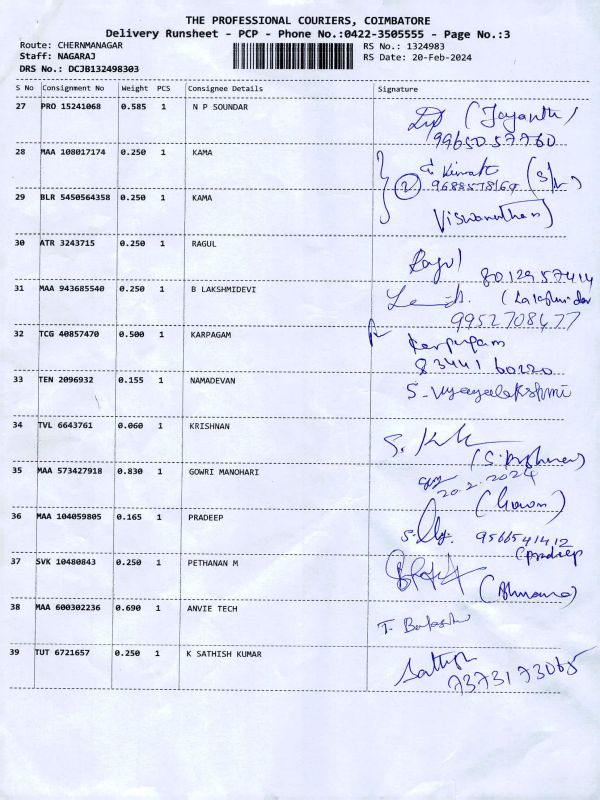 THE PROFESSIONAL COURIERS, COIMBATORE
Delivery Runsheet - PCP - Phone No.:0422-3505555 - Page No.:3
Route: CHERNMANAGAR RS No.: 1324983
Staff: NAGARAJ RS Date: 20-Feb-2024
DRS No.: DCJB132498303
S No Consignment No Weight PCS Consignee Details Signature
27 PRO 15241068 0.585 1 N P SOUNDAR
(Jayanth)
9965057760
28 MAA 108017174 0.250 1 KAMA
9688578169 (S/
29 BLR 5450564358 0.250 1 KAMA
2
Viswanathan)
30 ATR 3243715 0.250 1 RAGUL
Ragul
8012957414
31 MAA 943685540 0.250 1 B LAKSHMIDEVI
9952708477
32 TCG 40857470 0.500 1 KARPAGAM
Karpagam
8344160220
33 TEN 2096932 0.155 1 NAMADEVAN
S-Vijayalakshmi
34 TVL 6643761 0.060 1 KRISHNAN
35 MAA 573427918 0.830 1 GOWRI MANOHARI
20.2.2024
36 MAA 104059805 0.165 1 PRADEEP
9566541412
(pradeep
37 SVK 10480843 0.250 1 PETHANAN M
38 MAA 600302236 0.690 1 ANVIE TECH
39 TUT 6721657 0.250 1 K SATHISH KUMAR
7373173065